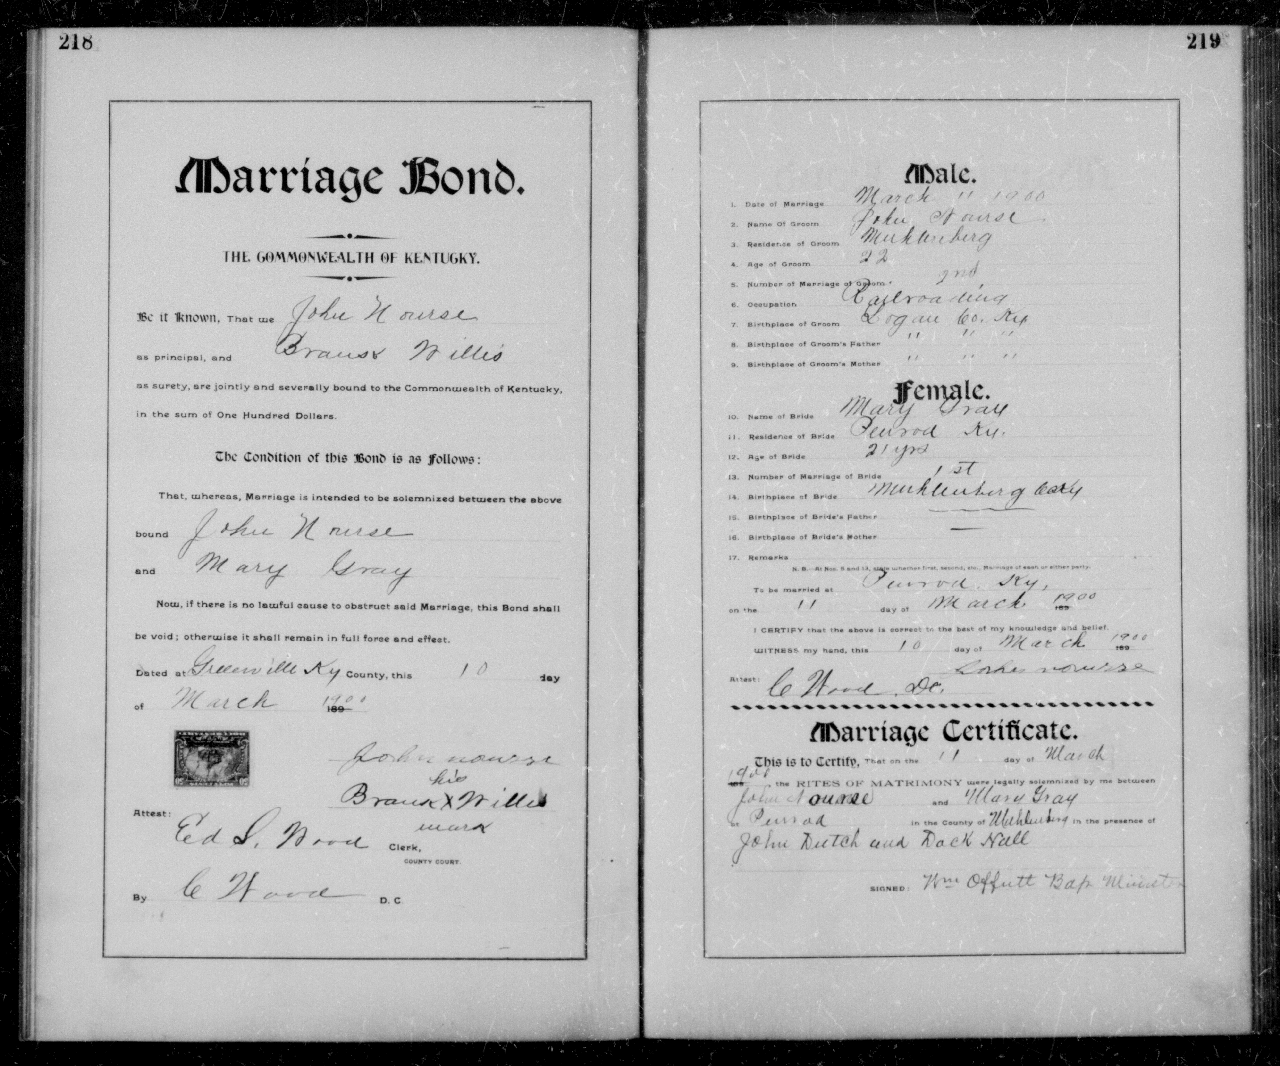 218
Marriage Bond.
THE COMMONWEALTH OF KENTUCKY.
Be it Known, That we John Nourse
as principal, and Brank Willis
as surety, are jointly and severally bound to the Commonwealth of Kentucky,
in the sum of One Hundred Dollars.
The Condition of this Bond is as Follows:
That, whereas, Marriage is intended to be solemnized between the above
bound John Nourse
and Mary Gray
Now, if there is no lawful cause to obstruct said Marriage, this Bond shall
be void; otherwise it shall remain in full force and effect.
Dated at Greenville Ky County, this 10 day
of March 1900 189
John nourse
his
Brank X Willis
mark
Attest:
Ed S. Wood Clerk,
COUNTY COURT.
By C Wood D. C.
219
Male.
1. Date of Marriage March 11 1900
2. Name Of Groom John Nourse
3. Residence of Groom Muhlenberg
4. Age of Groom 22
5. Number of Marriage of Groom 2nd
6. Occupation Railroading
7. Birthplace of Groom Logan Co. Ky
8. Birthplace of Groom's Father " " "
9. Birthplace of Groom's Mother " " "
Female.
10. Name of Bride Mary Gray
11. Residence of Bride Penrod Ky.
12. Age of Bride 21 yrs
13. Number of Marriage of Bride 1st
14. Birthplace of Bride Muhlenberg Co Ky
15. Birthplace of Bride's Father
16. Birthplace of Bride's Mother
17. Remarks
N. B.—At Nos. 5 and 13, state whether first, second, etc., Marriage of each or either party.
To be married at Penrod Ky,
on the 11 day of March 1900 189
I CERTIFY that the above is correct to the best of my knowledge and belief.
WITNESS my hand, this 10 day of March 1900 189
John nourse
Attest: C Wood, DC.
Marriage Certificate.
This is to Certify, That on the 11 day of March
1900, the RITES OF MATRIMONY were legally solemnized by me between
John Nourse and Mary Gray
at Penrod in the County of Muhlenberg in the presence of
John Dutch and Dock Nall
SIGNED: Wm Offutt Bap Minister